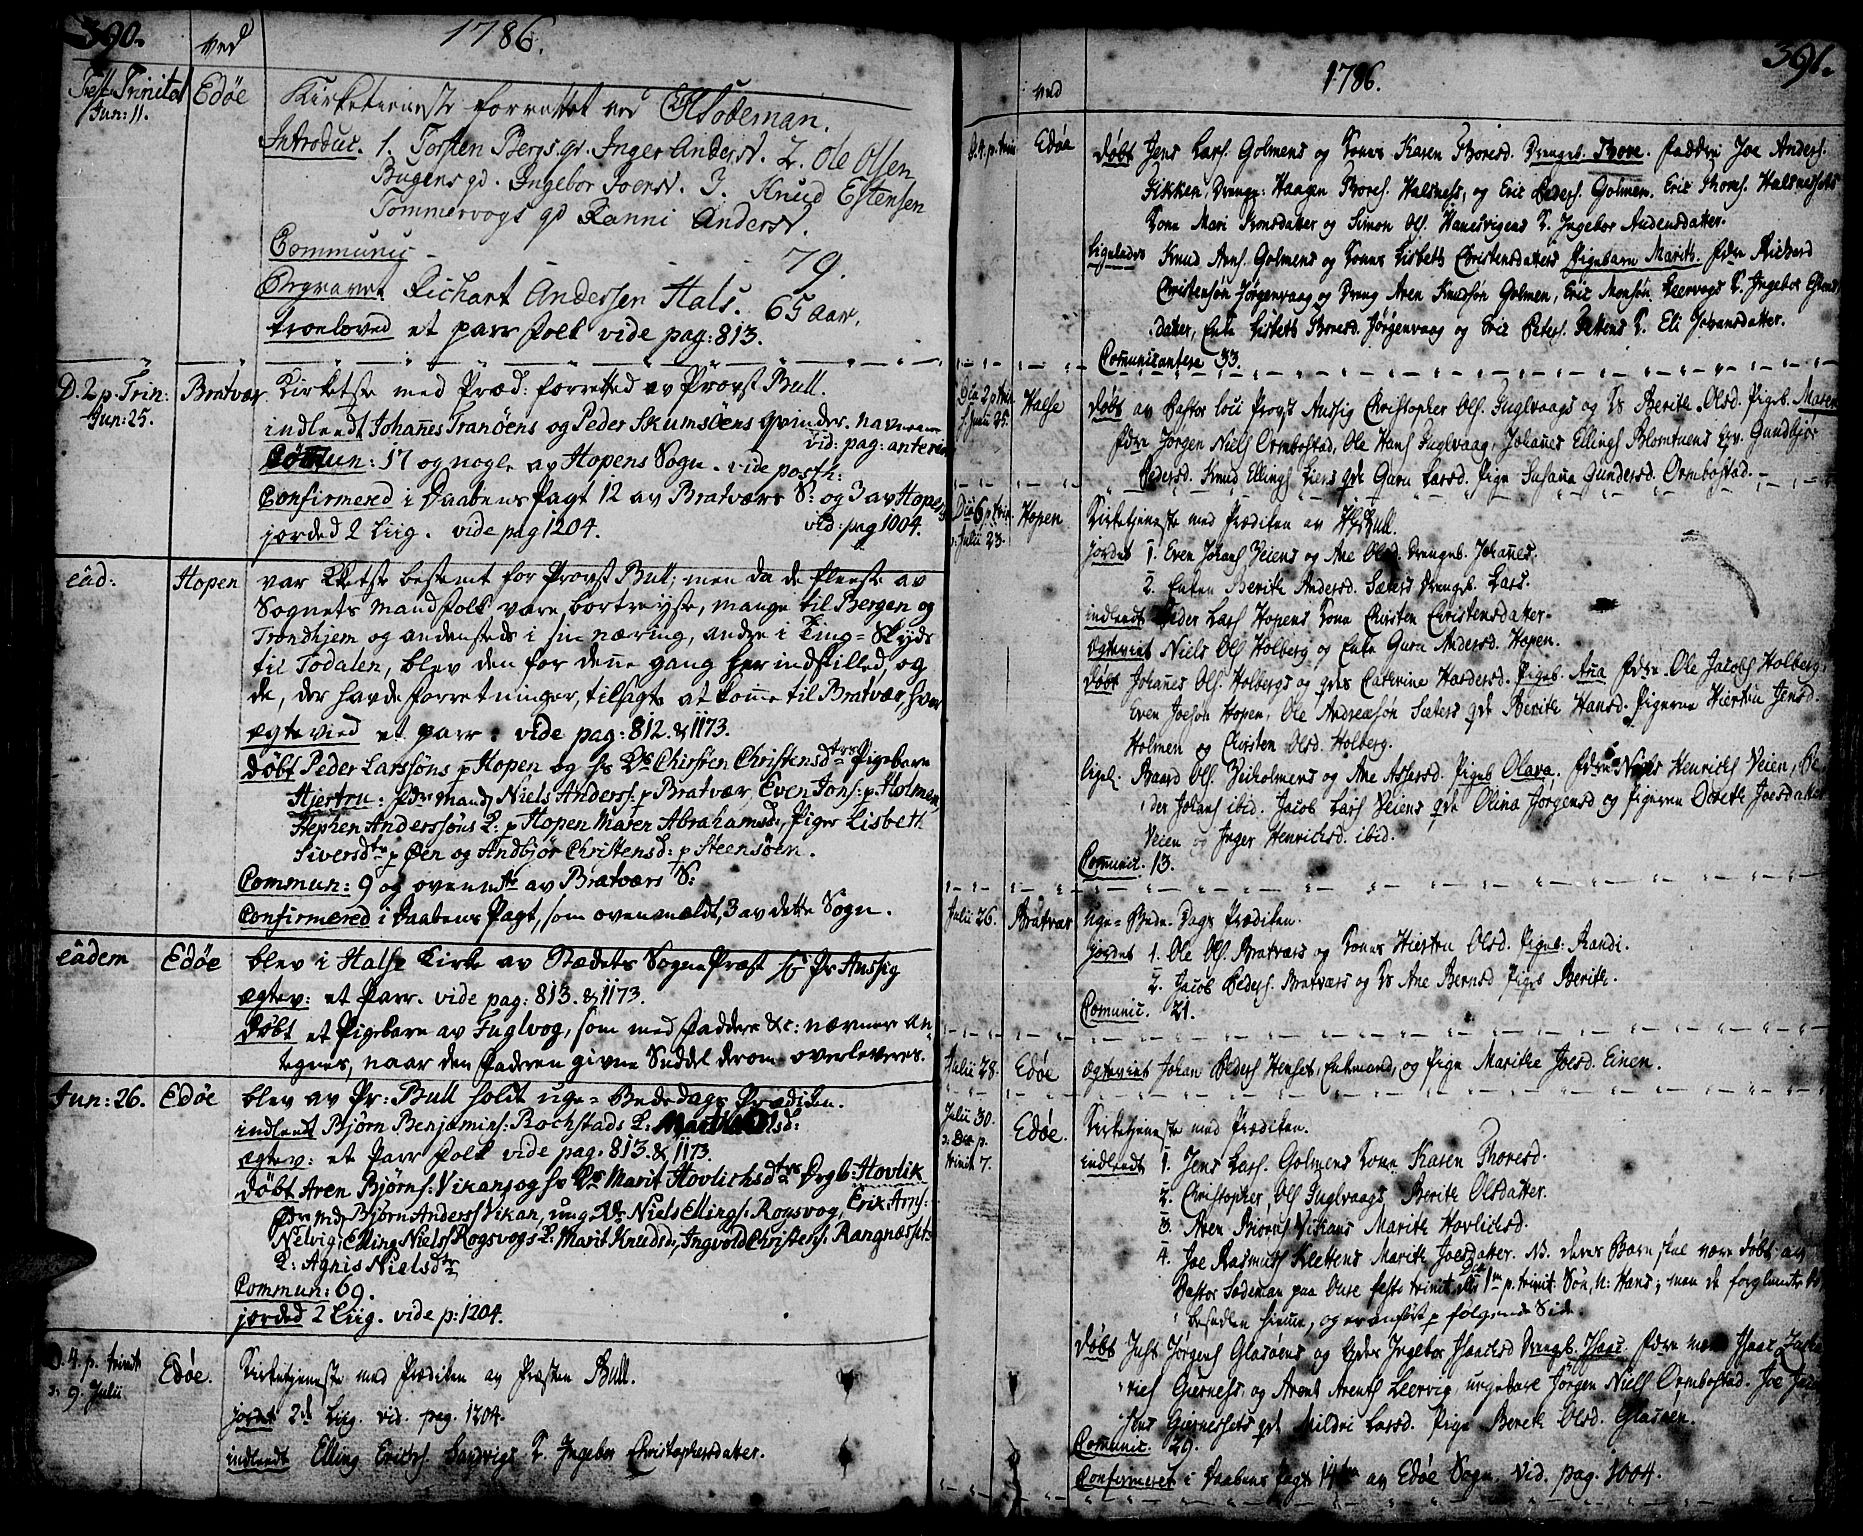 390. ved 1786.
Fest: Trinitat Jun: 11. Edøe
Kirketieneste forrettet ved HSodeman.
Introduc. 1. Torsten Bergs qv. Inger Andersd. 2. Ole Olsen
Bugens qd. Ingebor Joensd. 3. Knud Estensen
Tømmervogs qd Ranni Andersd.
Communic - - - 79.
Begravet Richart Andersen Hals. 65 aar.
troeloved et parr folk vide pag: 813.
D. 2 p. Trin: Jun: 25. Bratvær
Kirketste med Præd: forretted av Provst Bull.
indleedt Johañes Tranöens og Peder Skumsöens qvinder. navnene
vid: pag: anterior
Commun: 17 og nogle av Hopens Sogn. vide posth:
Confirmered i Daabens Pagt 12 av Bratværs S: og 3 av Hopens
jorded 2 Liig. vide pag 1204. vid: pag 1004.
eâd: Hopen
var Kketste bestemt for Provst Bull; men da de fleeste av
Sognets mandfolk vare bortreyste, mange til Bergen og
Trondhjem og andensteds i sin næring, andre i Ting-Skyds
til Todalen, blev den for deñe gang her indstilled, og
de, der havde forretninger, tilsagte at kome til Bratvær, hvor
ægtevied et parr: vide pag: 812. & 1173.
døbt Peder Larssöns p Hopen og hs Ks Chirsten Christensdtrs Pigebarn
Hjertru: fdre mand Niels Anders: p Bratvær, Even Jons: p Holmen
Stephen Anderssöns K: p Hopen Maren Abrahamsd:, Piger Lisbeth
Siversdtr p Öen og Andbjør Christensd: p Steensöen.
Commun: 9 og ovenmte av Bratværs S:
Confirmered i Daabens Pagt, som ovenmældt, 3 av dette Sogn.
eâdem Edøe
blev i Halse Kirke av Stedets SognePræst Hr Pr Aussig
ægtev: et Parr. vide pag: 813. & 1173.
døbt et Pigebarn av Fuglvog, som med faddere &c: nærmere an-
tegnes, naar den faderen givne Seddel derom overleveres.
Jun: 26. Edøe
blev av Pr: Bull holdt uge-Bededags Prædiken.
indleedt Bjørn Benjamins: Rochstads K: Marit Olsd:
ægtev: et Parr folk vide pag: 813. & 1173.
døbt Aren Bjørns: Vikans og hs Ks Marit Hovlichsdtrs Drgb: Hovlik
fdre md Bjørn Anders: Vikan, ung K Niels Ellings: Rogsvog, Erix Arns:
Nelvig, Elling Niels: Rogsvogs K: Marit Knudsdr, Ingvold Christens: Rangnæsset
K: Agnis Nielsdtr
Commun: 69.
jorded 2 Liig. vide p: 1204.
D. 4. p. trinit: 9. Julii Edøe.
Kirketjeneste med Prædiken av Præsten Bull.
jordet 2de Liig. vid. pag. 1204.
indleedt Elling Erichs: Sandvigs K Ingebor Christophersdatter.
391. ved 1786.
D. 4. p. trin: Edøe
døbt Jens Lars: Golmens og Kones Karen Thoresd. Drengeb. Thore. faddere Joe Anders:
Fikken, Drenge: Haagen Thores: Halsness, og Eric Peders: Golmen. Eric Thores: Halsnessets
Kone Mari Arnsdatter og Simon Ols: Hanesvigens K. Ingebor Audensdatter.
Ligeledes Knud Arns: Golmens og Kones Lisbeth Christensdatters Pigebarn Marith. fdre Richard
Christensøn Jørgenvaag og Dreng Aren Knudsøn Golmen, Eric Monsøn Leervogs K. Ingebor
datter, Enke Lisbeth Thoresd. Jørgenvaag og Eric Peters: K. Eli Johansdatter.
Comunicantere 33.
Dca 2 p trin. s: Junii 25. Halse
døbt av Pastor loci Provst Aussig Christopher Ols: Fuglvaags og Ks Berite Olsd. Pigeb. Maren
fdre Jørgen Niels: Ormbostad, Ole Hans: Fuglvaag, Johañes Ellings: Blomtuens K. Gundbjør
Pedersd. Knud Ellings: Liens qde Guru Larsd. Pige Susaña Gundersd. Ormbostad.
Dca 6 p trin. s: Julii 23. Hopen
Kirketjeneste med Prædiken av HBull.
jordet 1. Even Johans: Veiens og Ane Olsd. Drengeb. Johañes.
2. Enken Berite Andersd. Sæters Drengeb. Lars.
indleedt Peder Lars: Hopens Kone Chirsten Christensdatter.
ægteviet Niels Ols: Holberg og Enke Guru Andersd. Hopen.
døbt Johañes Ols: Holbergs og qdes Cathrine Hardersd. Pigeb. Aña fdre. Ole Jacobs: Holberg,
Even Joesøn Hopen, Ole Andreasøn Sæters qde Berite Hansd. Pigerne Hiertru Jensd.
Holmen og Chirsten Olsd. Holberg.
ligel. Baard Ols: Veiholmens og Ane Assersd. Pigeb Olava. fdre Niels Henrichs: Veien, Pe-
der Johans: ibid. Jacob Lars: Veiens qde Olina Jørgensd og Pigerne Dorith Joesdatter
Veien og Inger Henrichsd. ibid.
Comunic. 13.
Julii 26. Bratvær
Uge-Bede-Dags Prædiken.
jordet 1. Ole Ols: Bratværs og Kones Hiertru Olsd. Pigeb: Randi.
2. Jacob Peders: Bratværs og Ks Ane Bernsd Pigeb Berite.
Comunic. 21.
Julii 28. Edøe
ægteviet Johan Peders: Henset, Enkemand, og Pige Marithe Joesd. Einen.
Julii 30. s: Dca p. trinit 7. Edøe.
Kirketjeneste med Prædiken.
indleedt 1. Jens Lars: Golmens Kone Karen Thoresd.
2. Christopher Ols: Fuglvaags Berite Olsdatter.
3. Aren Biørns: Vikans Marite Hovlichsd.
4. Joe Rasmus: Klettens Marite Joesdatter. NB. deres Barn skal være døbt av
Pastor Sodeman paa Onse festo trinit. Dca 1ma p. trinit. Søn, n: Hans; men de forglemte
besedlen hieme, og er anført p følgende Side.
døbt Just Jørgens: Glasøens og qdes Ingebor Isaacsd Drengeb. Isaac. fdre mænd Isaac Zacha-
ries: Giernesß. og Arent Arents: Leervig, ungekarl Jørgen Niels: Ormbostad. Joe
sens Giernessets qde Mildri Larsd. Pige Berite Olsd. Glasøen.
Comunic. 29.
Confirmeret i Daabens Pagt 14ten av Edøe Sogn. Vid. pag. 1004.